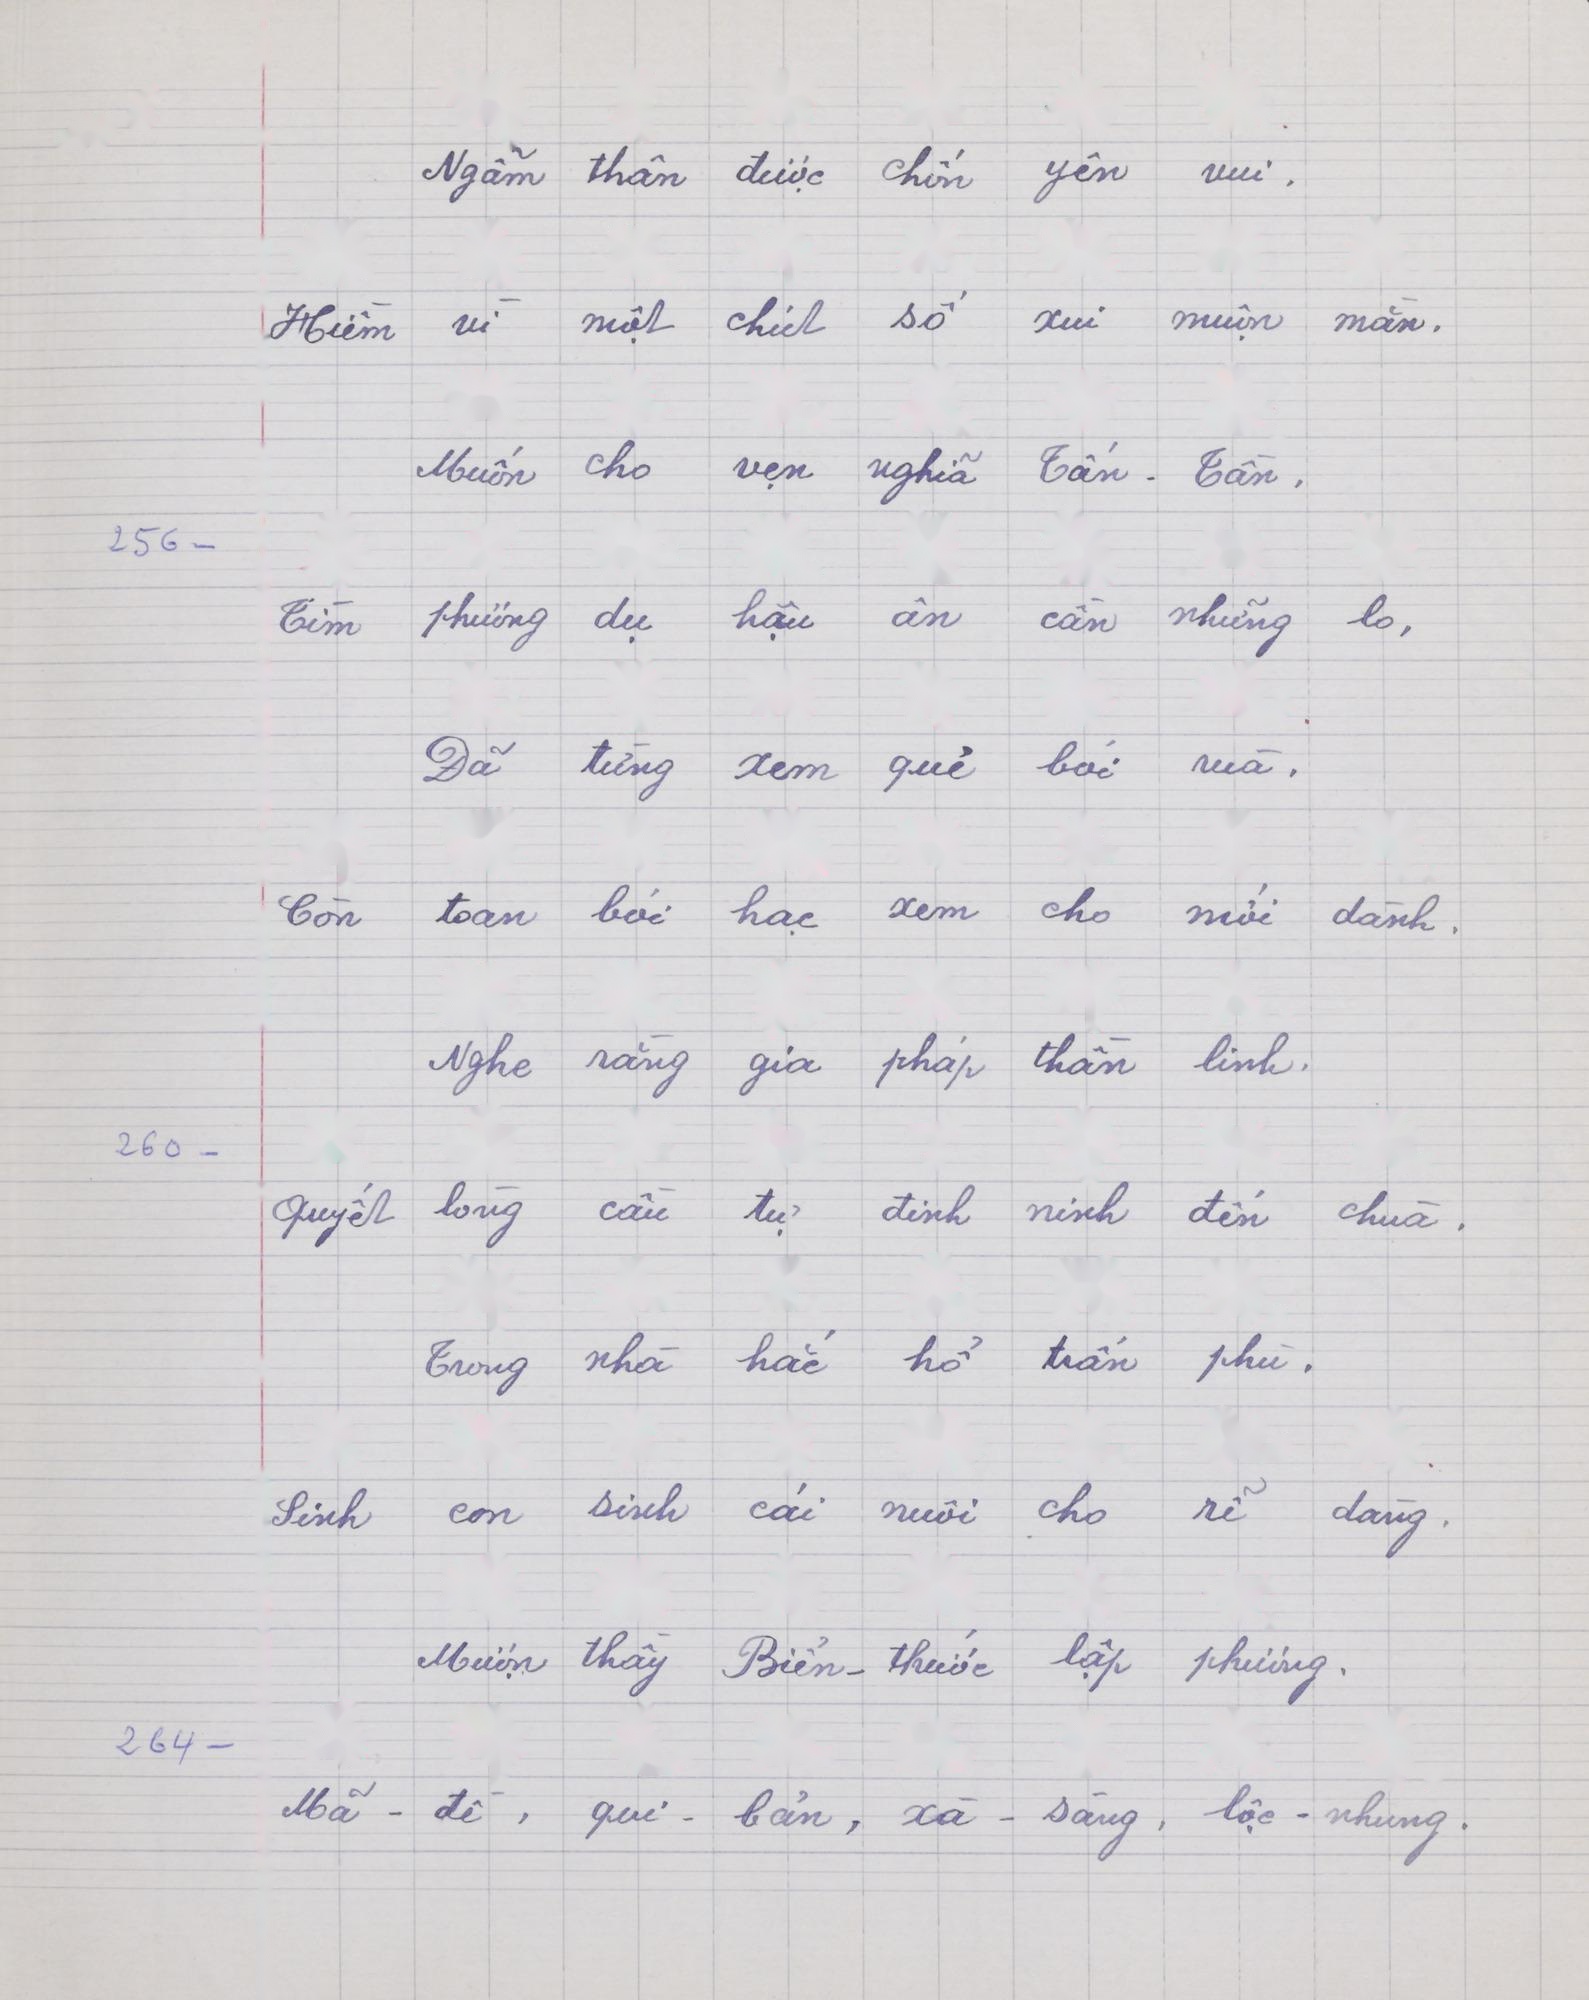 Ngẫm thân được chốn yên vui.
Hiềm vì một chiết số xui muộn mằn.
Muốn cho vẹn nghĩa Tấn - Tần,
256 –
Tìm phương dụ hậu ân cần những lo,
Đã từng xem quẻ bói rùa.
Còn toan bói hạc xem cho mới dành.
Nghe rằng gia pháp thần linh.
260 –
Quyết lòng cầu tự đinh ninh đến chùa.
Trong nhà hắc hổ trấn phù.
Sinh con sinh cái nuôi cho rễ dàng.
Mượn thầy Biển - thước lập phương.
264 –
Mã - đề, qui - bản, xà - sàng, lộc - nhung.